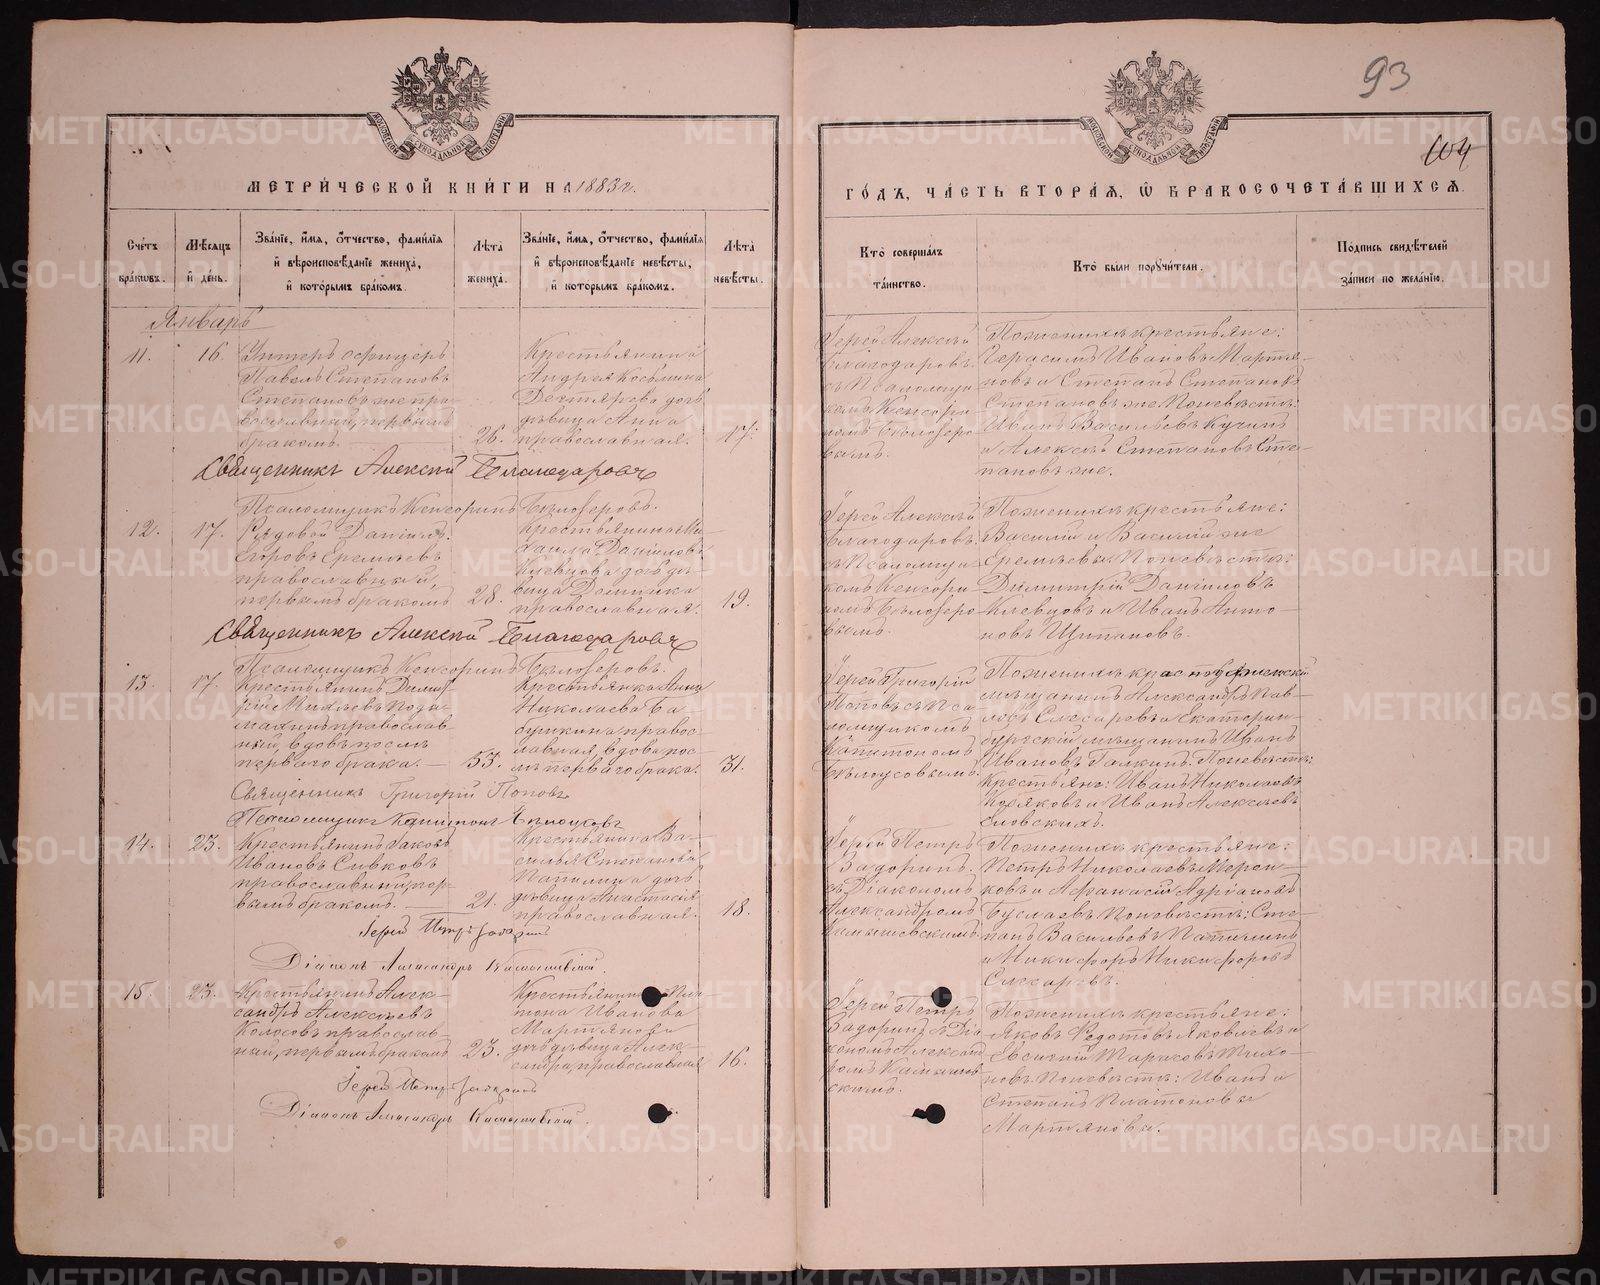 93
104
МОСКОВСКОЙ СѴНОДАЛЬНОЙ ТИПОГРАФІИ
МОСКОВСКОЙ СѴНОДАЛЬНОЙ ТИПОГРАФІИ
МЕТРИ́ЧЕСКОЙ КНИ́ГИ НА 1883 г.
ГО́ДЪ, ЧА́СТЬ ВТОРА́Я, Ѡ БРАКОСОЧЕТА́ВШИХСЯ.
Сче́тъ бра́кѡвъ.
Мѣ́сяцъ и де́нь.
Зва́ніе, и́мя, ѻ҆́тчество, фами́лія и вѣроисповѣ́даніе жениха̀, и кото́рымъ бра́комъ.
Лѣ́та жениха̀.
Зва́ніе, и́мя, ѻ҆́тчество, фами́лія и вѣроисповѣ́даніе невѣ́сты, и кото́рымъ бра́комъ.
Лѣ́та невѣ́сты.
Кто̀ соверша́лъ та́инство.
Кто̀ бы́ли порꙋчи́тели.
По́дпись свидѣ́телей за́писи по жела́нію.
Январь
11.
16.
Унтеръ офицеръ
Павелъ Степановъ
Степановъ же пра-
вославный, первымъ
бракомъ.
26.
Крестьянина
Андрея Козьмина
Дехтярева дочь
дѣвица Анна
православная.
17.
Іерей Алексѣй
Благодаровъ
съ Псаломщи-
комъ Кенсори-
номъ Бѣлозеро-
вымъ.
По женихѣ крестьяне:
Герасимъ Ивановъ Мартья-
новъ и Степанъ Степановъ
Степановъ же. По невѣстѣ:
Иванъ Васильевъ Кучинъ
и Алексѣй Степановъ Сте-
пановъ же.
Священникъ Алексій Благодаровъ
Псаломщикъ Кенсоринъ Бѣлозеровъ.
12.
17.
Рядовой Даніилъ
Егоровъ Еремѣевъ
православный,
первымъ бракомъ
28.
Крестьянина Ми-
хаила Даніилова
Клевцова дочь дѣ-
вица Домника
православная.
19.
Іерей Алексѣй
Благодаровъ
съ Псаломщи-
комъ Кенсори-
номъ Бѣлозеро-
вымъ.
По женихѣ крестьяне:
Василій и Василій же
Еремѣевы. По невѣстѣ:
Димитрій Даниловъ
Клевцовъ и Иванъ Анто-
новъ Щипановъ.
Священникъ Алексій Благодаровъ
Псаломщикъ Кенсоринъ Бѣлозеровъ.
13.
17.
Крестьянинъ Димит-
рій Михѣевъ
православ-
ный, вдовъ послѣ
перваго брака.
53.
Крестьянка Анна
Николаева Ба-
бушкина, правос-
лавная, вдова пос-
лѣ перваго брака.
31.
Іерей Григорій
Поповъ съ Пса-
ломщикомъ
Капитономъ
Бѣлоусовымъ.
По женихѣ красноуфимскій
мѣщанинъ Александръ Пав-
ловъ Слесаревъ и Екатерин-
бургскій мѣщанинъ Иванъ
Ивановъ Галкинъ. По невѣстѣ:
Крестьяне: Иванъ Николаевъ
и Иванъ Алексѣевъ
Еловскихъ.
Священникъ Григорій Поповъ
Псаломщикъ Капитонъ Бѣлоусовъ
14.
23.
Крестьянинъ Іаковъ
Ивановъ Сивковъ
православный, пер-
вымъ бракомъ.
21.
Крестьянина Ва-
силья Степанова
Папилина дочь
дѣвица Анастасія
православная.
18.
Іерей Петръ
Задоринъ
съ Діакономъ
Александромъ
Камышевскимъ
По женихѣ крестьяне:
Петръ Николаевъ
и Афанасій Адріановъ
Буслаевъ. По невѣстѣ: Сте-
панъ Васильевъ Папилинъ
и Никифоръ Никифоровъ
Слесаревъ.
Іерей Петръ Задоринъ
Діаконъ Александръ Камышевскій.
15.
23.
Крестьянинъ Алек-
сандръ Алексѣевъ
Колосовъ православ-
ный, первымъ бракомъ
23.
Крестьянина Пла-
тона Иванова
Мартьянова
дочь дѣвица Алек-
сандра, православная
16.
Іерей Петръ
Задоринъ съ Діа-
кономъ Александ-
ромъ Камышев-
скимъ.
По женихѣ крестьяне:
Яковъ Федотовъ Яковлевъ и
Евсигній Тарасовъ Тихо-
новъ. По невѣстѣ: Иванъ и
Степанъ Платоновы
Мартьяновы.
Іерей Петръ Задоринъ
Діаконъ Александръ Камышевскій.
METRIKI.GASO-URAL.RU